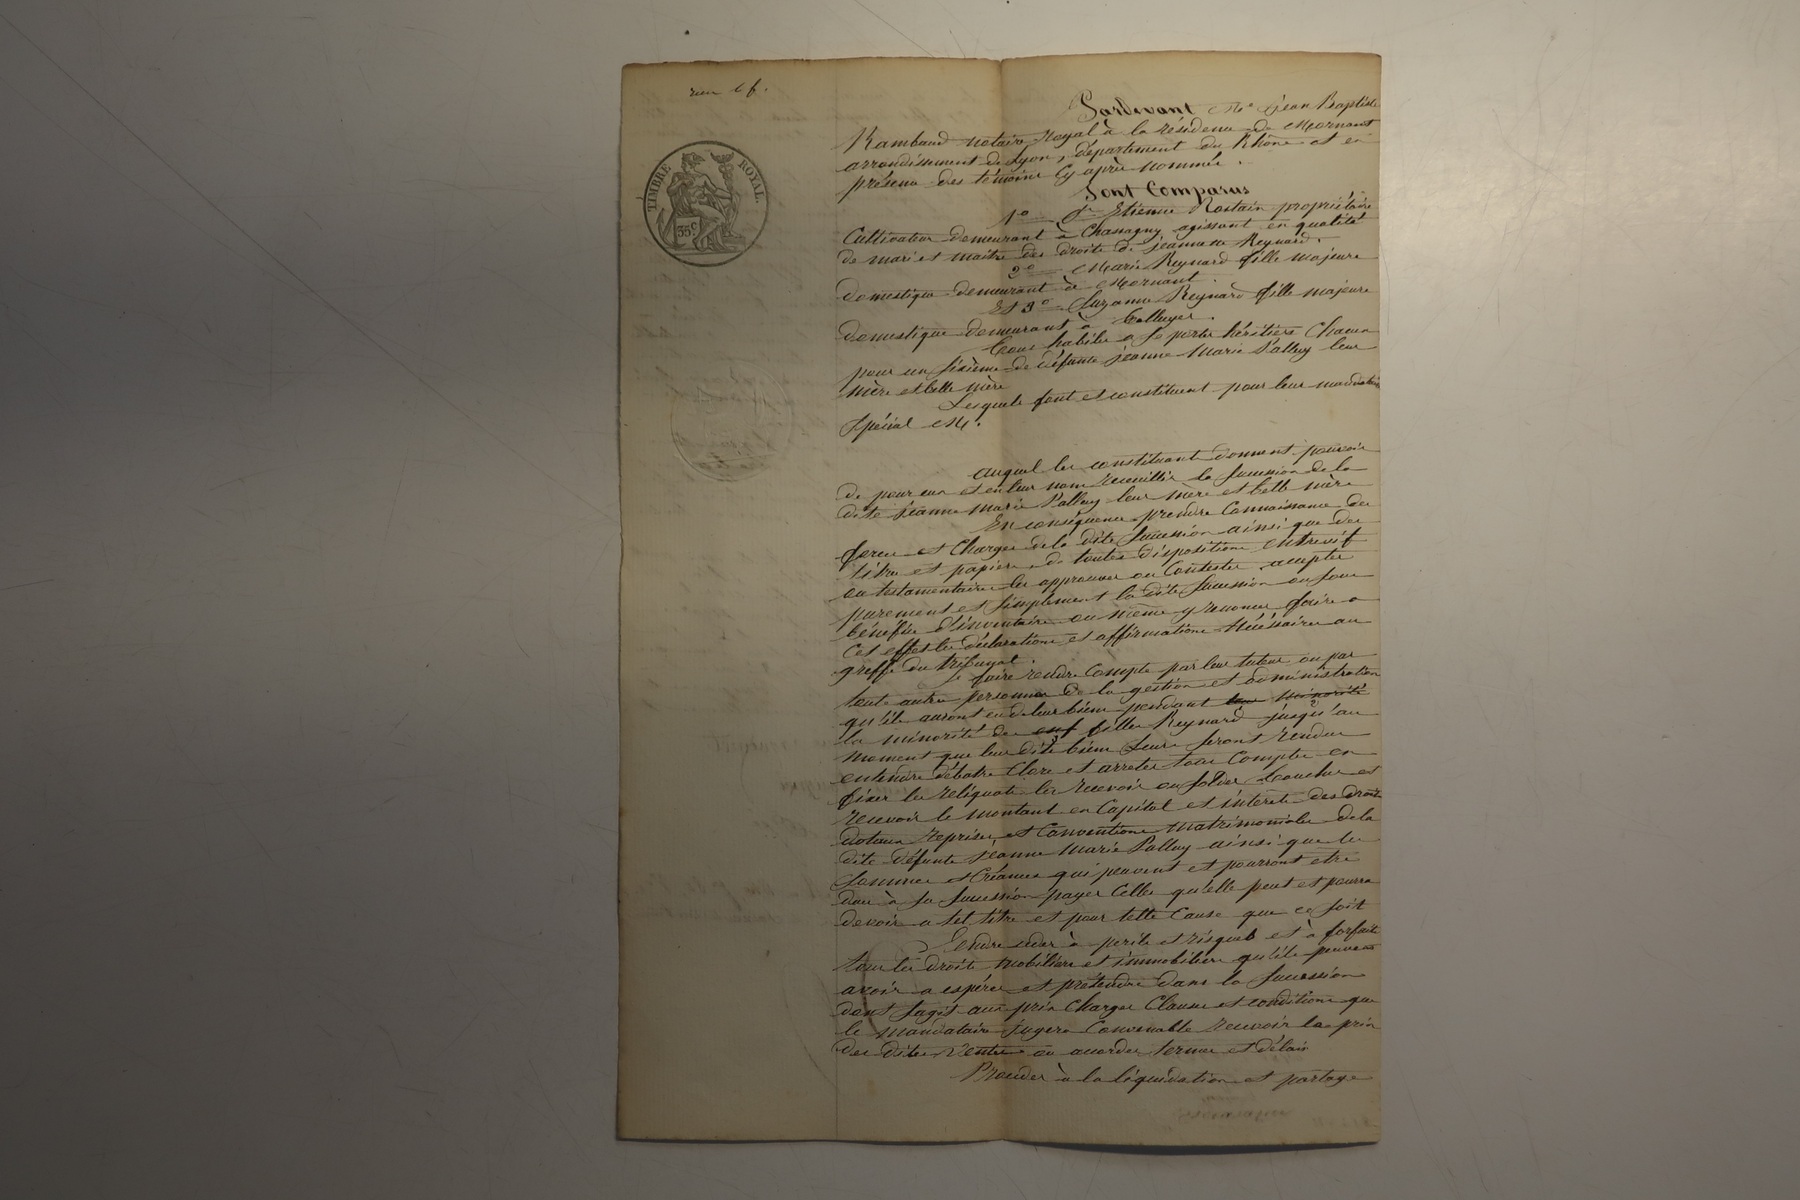 TIMBRE ROYAL.
35 c
Pardevant Me Jean Baptiste
Rambaud notaire Royal à la résidence de Mornant
arrondissement de Lyon, département du Rhône et en
présence des témoins cy après nommés.
Sont Comparus
1o Sr Etienne Rostain propriétaire
Cultivateur demeurant à Chassagny, agissant en qualité
de mari et maitre des droits de jeannette Reynard.
2o Marie Reynard fille majeure
domestique demeurant à Mornant.
Et 3o Suzanne Reynard fille majeure
domestique demeurant à Talluyer.
Tous habiles a se porter héritiers Chacun
pour un sixième de défunte jeanne Marie Palluy leur
mère et belle mère
Lesquels font et constituent pour leur mandataire
Spécial Mr.
auquel les constituants donnent pouvoir
de pour eux et en leur nom recueillir la succession de la
dite jeanne marie Palluy leur mère et belle mère
En conséquence prendre Connaissance des
forces et Charges de la dite Succession ainsi que des
titres et papiers, de toutes dispositions entrevifs
ou testamentaires les approuver ou Contester, accepter
purement et simplement la dite Succession ou sous
bénéfice d'inventaire ou même y renoncer faire a
Ces effets les déclarations et affirmations nécéssaires au
greffe du tribunal.
Se faire rendre Compte par leur tuteur ou par
toute autre personne de la gestion et administration
qu'ils auront eu de leur biens pendant leur minorité
la minorité des filles Reynard jusqu'au
moment que leur dits biens Leurs seront rendus
entendre débatre Clore et arreter tous Comptes en
fixer les réliquats les recevoir ou solder toucher et
recevoir le montant en Capital et intérets des droits
dotaux reprises et Conventions matrimoniales de la
dite défunte jeanne Marie Palluy ainsi que les
Sommes et Créances qui peuvent et pourront etre
dues à sa succession payer Celles qu'elle peut et pourra
devoir a tel titre et pour telle Cause que ce soit
Vendre céder à perils et risques et à forfait
tous les droits mobiliers et immobiliers qu'ils peuvent
avoir a espérer et prétendre dans la Succession
dont sagit aux prix Charges Clauses et conditions que
le mandataire jugera Convenable recevoir les prix
des dites Ventes ou accorder termes et délais
Procéder à la liquidation et partage